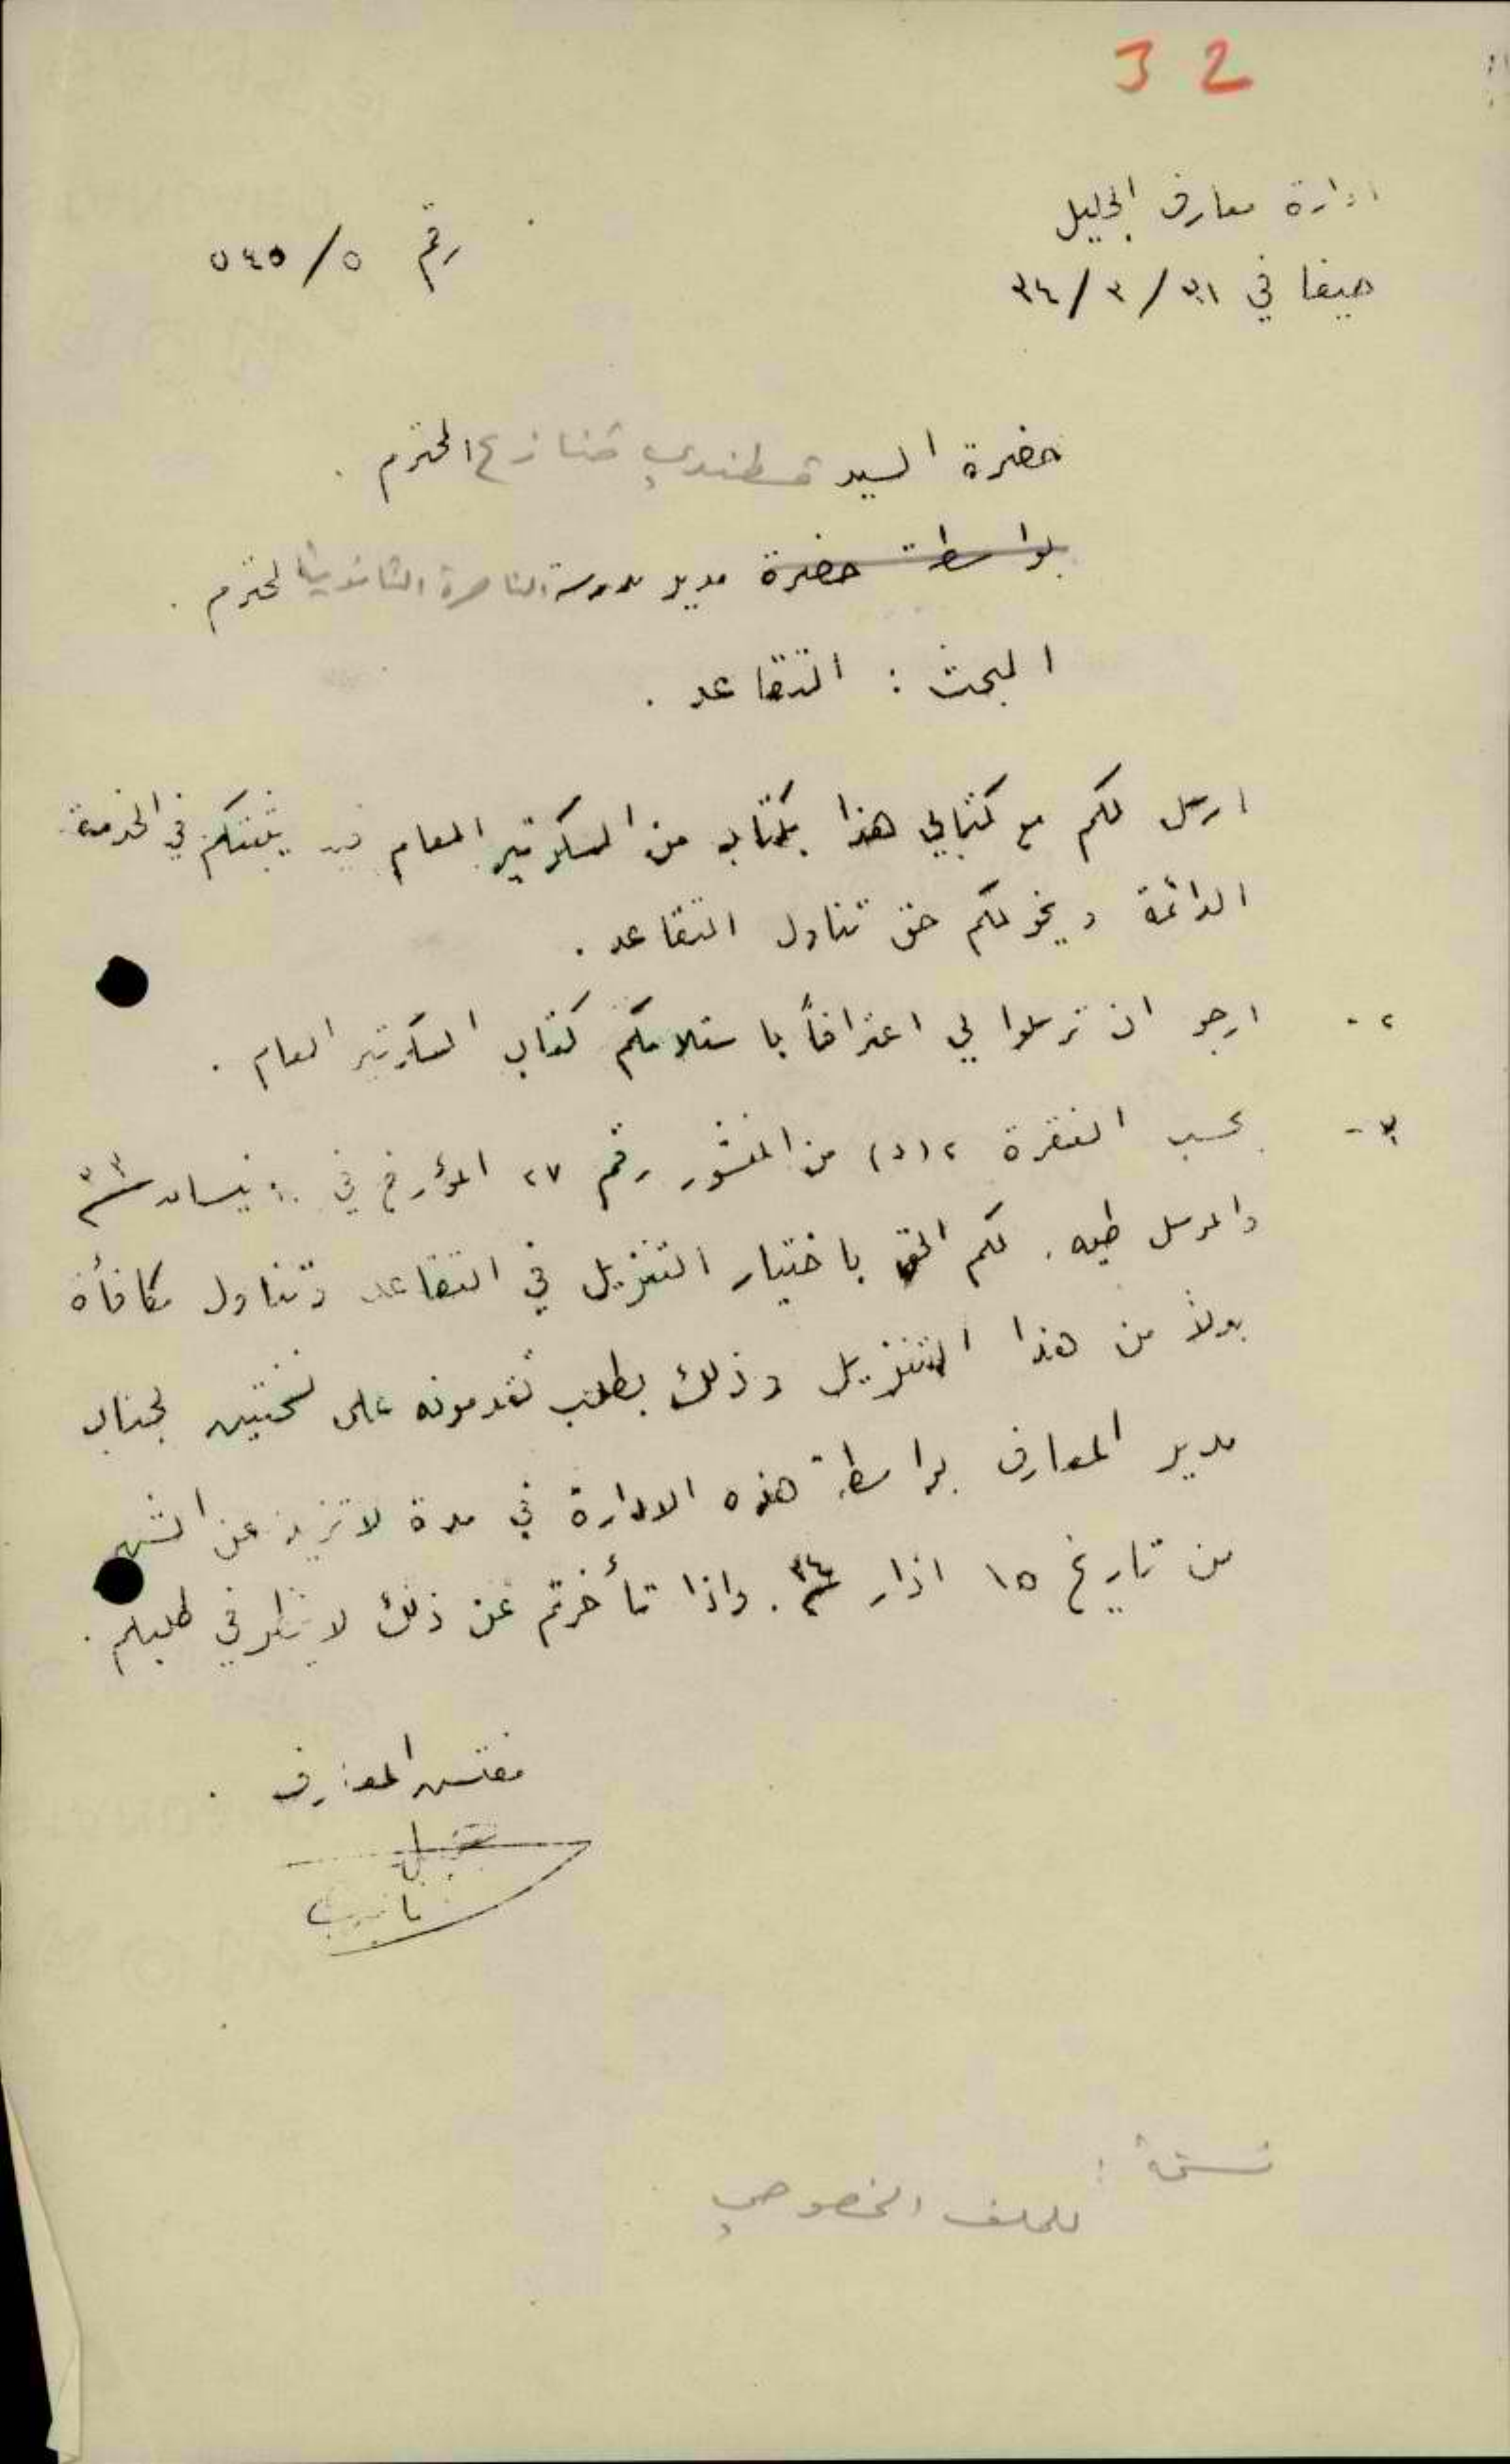 32
ادارة معارف الجليل
حيفا في ٣١/٣/٣٤
رقم ٥/٥٤٥
حضرة السيد قسطندي قنازع المحترم .
بواسطة حضرة مدير مدرسة الناصرة الثانوية المحترم .
البحث : التقاعد .
ارسل لكم مع كتابي هذا بكتاب من السكرتير العام فيه يثبتكم في الخدمة
الدائمة ويخولكم حق تناول التقاعد .
٢ - ارجو ان ترسلوا لي اعترافاً باستلامكم كتاب السكرتير العام .
٣ - بحسب الفقرة ٢ (د) من المنشور رقم ٢٧ المؤرخ في نيسان ٣٣
والمرسل طيه . لكم الحق باختيار التنزيل في التقاعد وتناول مكافأة
بدلاً من هذا التنزيل وذلك بطلب تقدمونه على نسختين لجناب
مدير المعارف بواسطة هذه الادارة في مدة لا تزيد عن الشهر
من تاريخ ١٥ اذار ٣٤ . واذا تأخرتم عن ذلك لا ينظر في طلبكم .
مفتش المعارف .
نسخة :
للملف الخصوصي